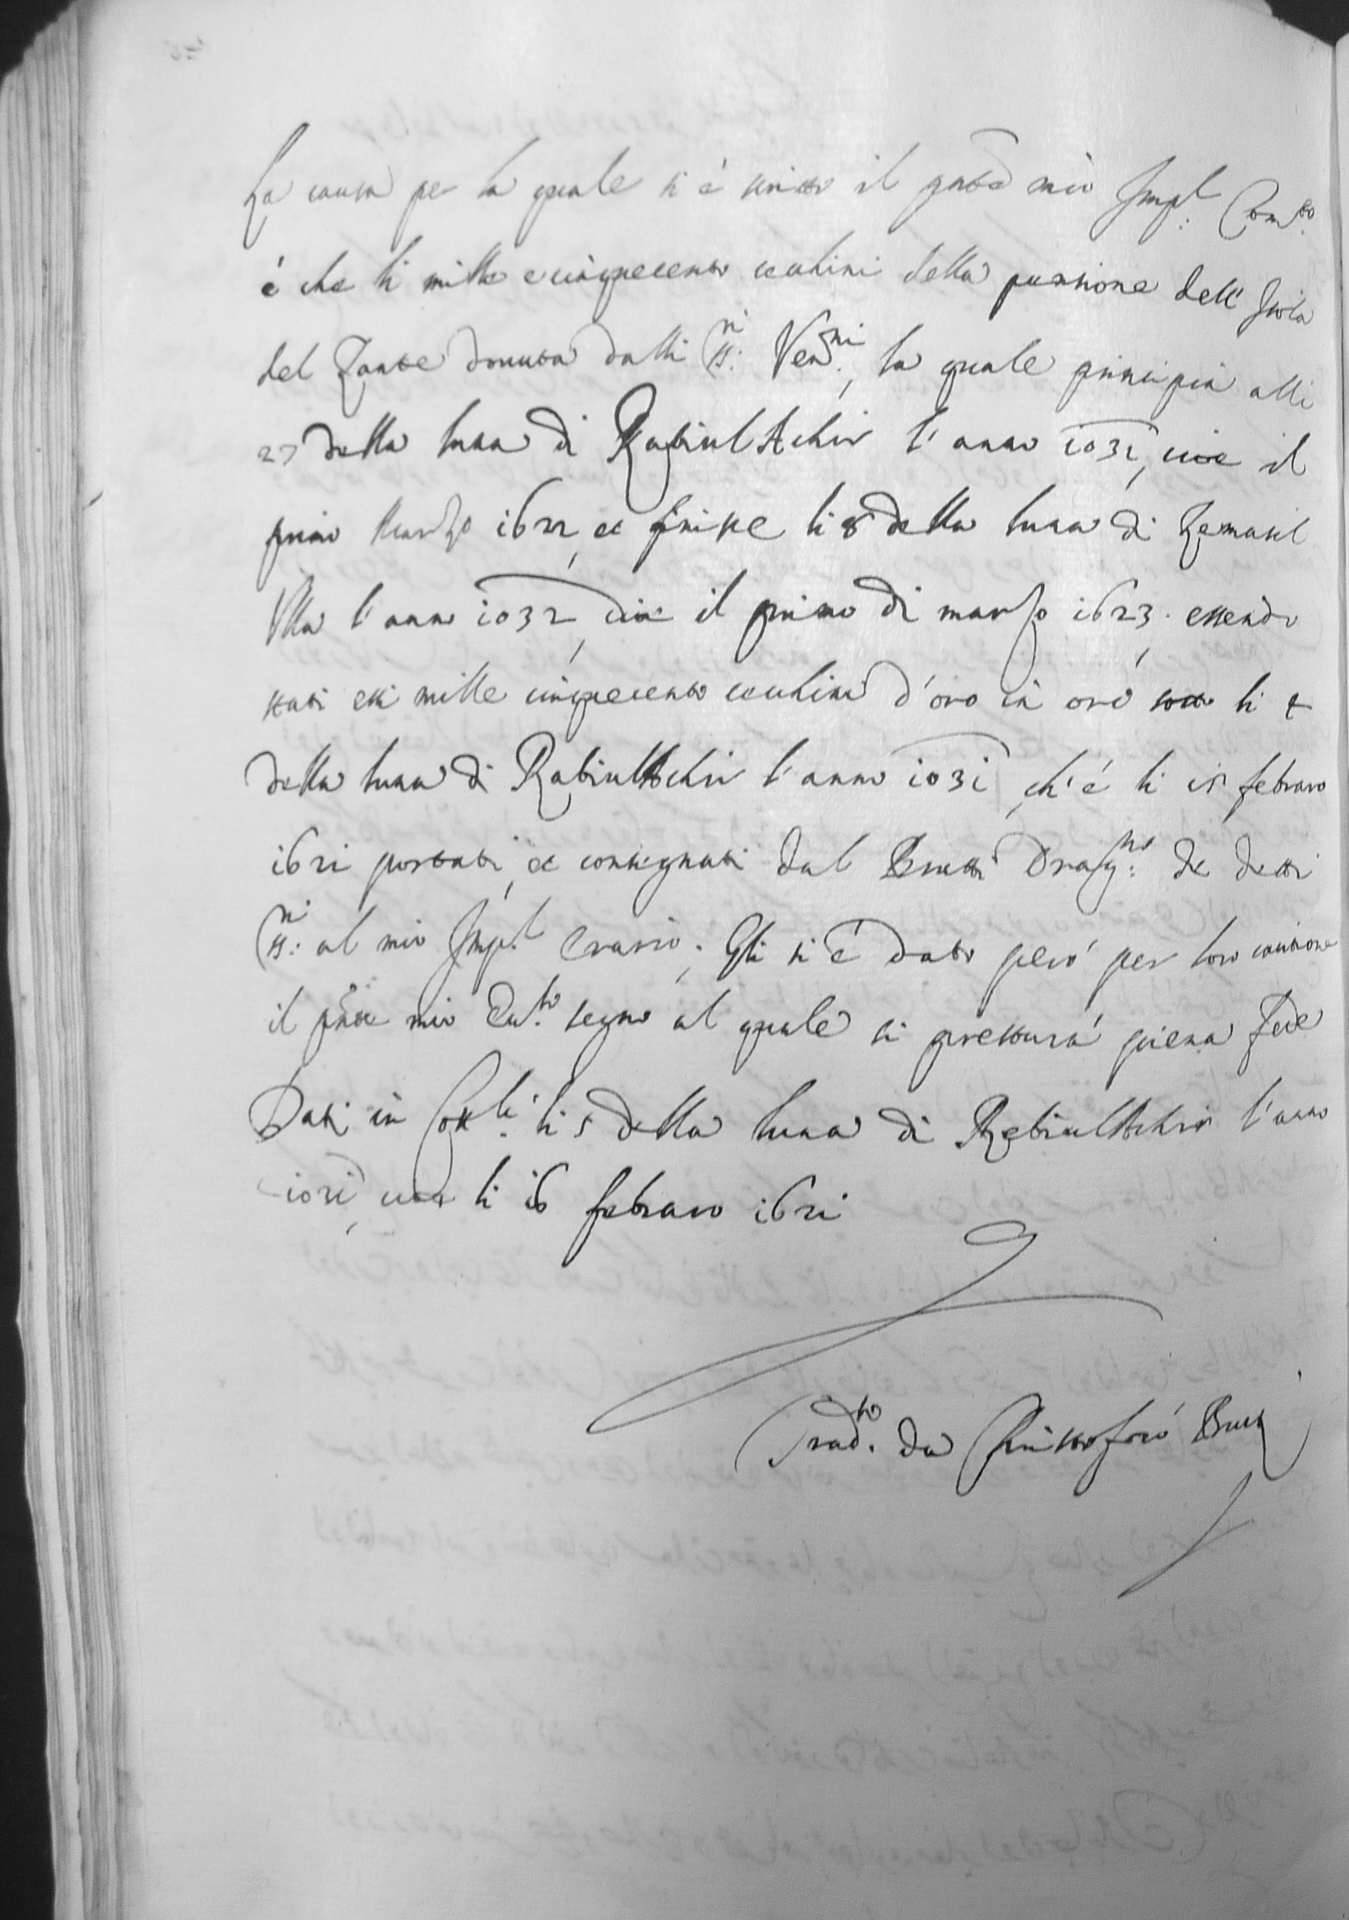 La causa per la quale si è scritto il pnte mio Impl: Com.to
è che li mille e cinquecento cechini della pensione dell' Isola
del Zante dovuta dalli SS:ri Ven.ni, la quale principia alli
27 della luna di Rabiul Achir l'anno 1031, cioe il
primo Marzo 1622, et finisce li 8 della luna di Zemasil
Ulla l'anno 1032, cioe il primo di marzo 1623. essendo
stati essi mille cinquecento cechini d'oro in oro sotto li 4
della luna di Rabiul Achir l'anno 1031, ch'è li 15 febraro
1621 portati, et consegnati dal Brutti Drag.no de detti
SS:ri al mio Imp.l Erario; Gli si è dato però per loro cautione
il pnte mio Ecc.so segno al quale si prestarà piena fede
Dati in Cos.li li 5 della luna di Rebiul Achir l'anno
1031, cioe li 16 febraro 1621
Trad.to da Christoforo Brutti